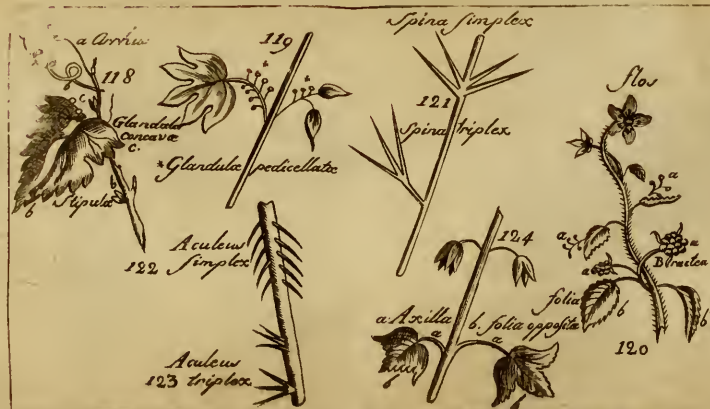 a Cirrhus
118
c
Glandulæ
Concavæ
c.
b
Stipulæ
b
119
*
*
*Glandulæ pedicellatæ
Spina Simplex
121
Spina triplex
flos
a
a
a
a
Bractea
folia
b
b
120
122
Aculeus
Simplex
Aculeus
123 triplex
124
a. Axilla
b. folia opposita
a
a
b
b